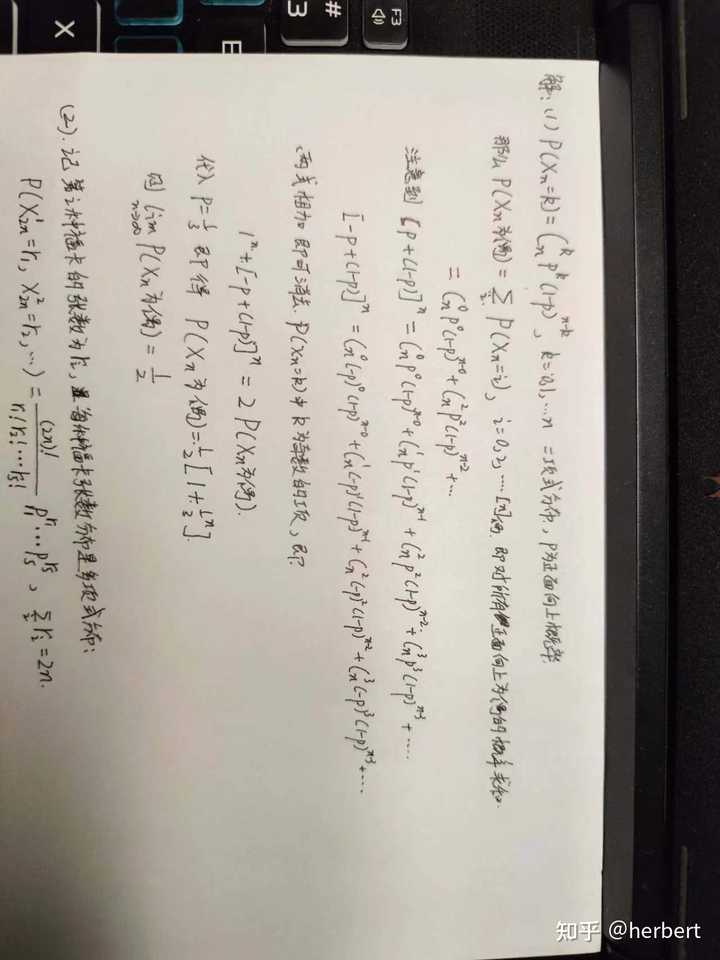 解: (1) P(Xn=k) = C_n^k p^k (1-p)^{n-k}, k=0,1,…n 二项式分布, p为正面向上概率.
那么 P(Xn为偶) = Σ_i P(Xn=i), i=0,2,…[n]偶. 即对所有正面向上为偶的概率求和.
= C_n^0 p^0 (1-p)^{n-0} + C_n^2 p^2 (1-p)^{n-2} + …
注意到 [p+(1-p)]^n = C_n^0 p^0 (1-p)^{n-0} + C_n^1 p^1 (1-p)^{n-1} + C_n^2 p^2 (1-p)^{n-2} + C_n^3 p^3 (1-p)^{n-3} + ….
[-p+(1-p)]^n = C_n^0 (-p)^0 (1-p)^{n-0} + C_n^1 (-p)^1 (1-p)^{n-1} + C_n^2 (-p)^2 (1-p)^{n-2} + C_n^3 (-p)^3 (1-p)^{n-3} + ….
两式相加即可消去 P(Xn=k) 中 k为奇数的项, 即:
1^n + [-p+(1-p)]^n = 2P(Xn为偶).
代入 p=1/3 即得 P(Xn为偶) = 1/2 [1+
lim_{n→∞} P(Xn为偶) = 1/2
(2). 记第i种福卡的张数为r_i, 且每种福卡张数分布是多项式分布:
P(X_{2n}^1=r_1, X_{2n}^2=r_2, …) = (2n)! / (r_1! r_2! … r_5!) p_1^{r_1} … p_5^{r_5}, Σ_i r_i = 2n.
知乎 @herbert
F3
#
3
E
X